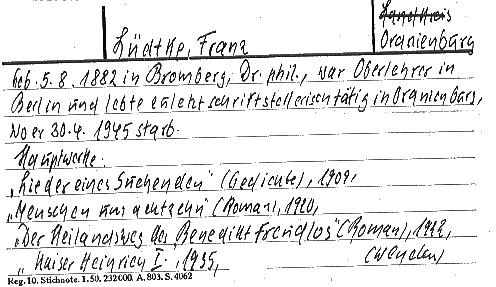 Landkreis
Lüdtke, Franz
Oranienburg
Geb. 5.8.1882 in Bromberg, Dr. phil., war Oberlehrer in
Berlin und lebte zuletzt schriftstellerisch tätig in Oranienburg,
wo er 30.4.1945 starb.
Hauptwerke:
„Lieder eines Suchenden" (Gedichte), 1909,
„Menschen um achtzehn" (Roman), 1920,
„Der Heilandsweg des Benedikt Freudlos" (Roman), 1922,
„Kaiser Heinrich I.", 1935,
Reg. 10. Stichnote. 1. 50. 232000. A. 803. S. 4062